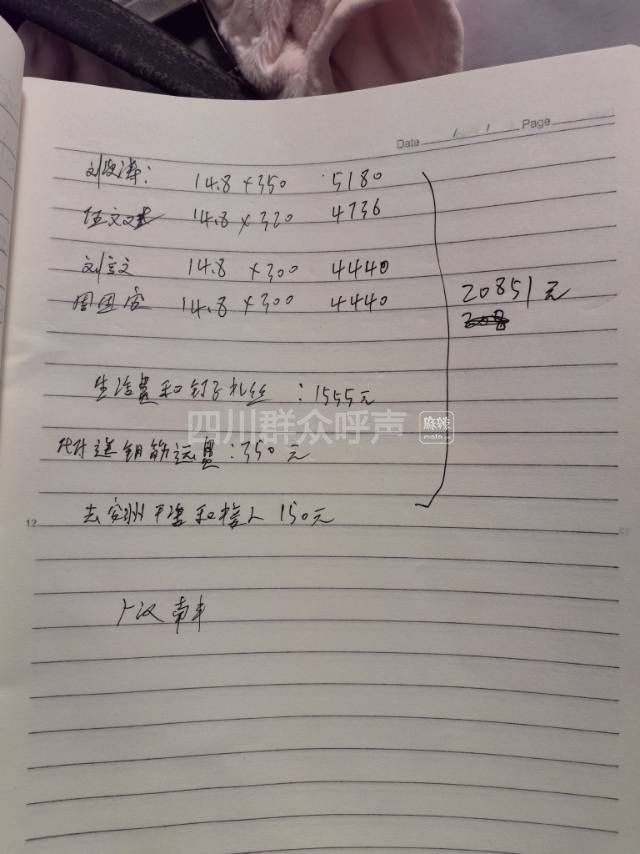 Date / / Page
刘 : 14.8 × 350 5180
伍文 14.8 × 320 4736
刘言文 14.8 × 300 4440
周国安 14.8 × 300 4440
20851元
生活费和钉子扎丝 : 1555元
四川群众呼声 麻辣 mala.cn
代付送钢筋运费 : 350元
去安州 和接人 150元
12
广汉南丰